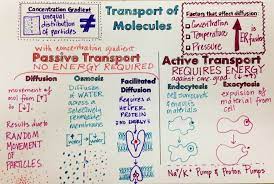 Concentration Gradient
unequal
distribution
of particles
Transport of
Molecules
Factors that affect diffusion
Concentration
Temperature
Pressure
with concentration gradient
Passive Transport
NO ENERGY REQUIRED
Active Transport
REQUIRES ENERGY
against conc. grad.
Diffusion
movement of
mol from [↑] to
[↓]
Results due to
RANDOM
MOVEMENT
OF
PARTICLES.
Osmosis
Diffusion
of WATER
across a
selectively
permeable
membrane
Facilitated
Diffusion
Requires a
HELPER
PROTEIN
Endocytosis
cell surrounds
& engulfs
materials
Exocytosis
expulsion of
material from
cell
Na⁺ K⁺ Pump & Proton Pumps